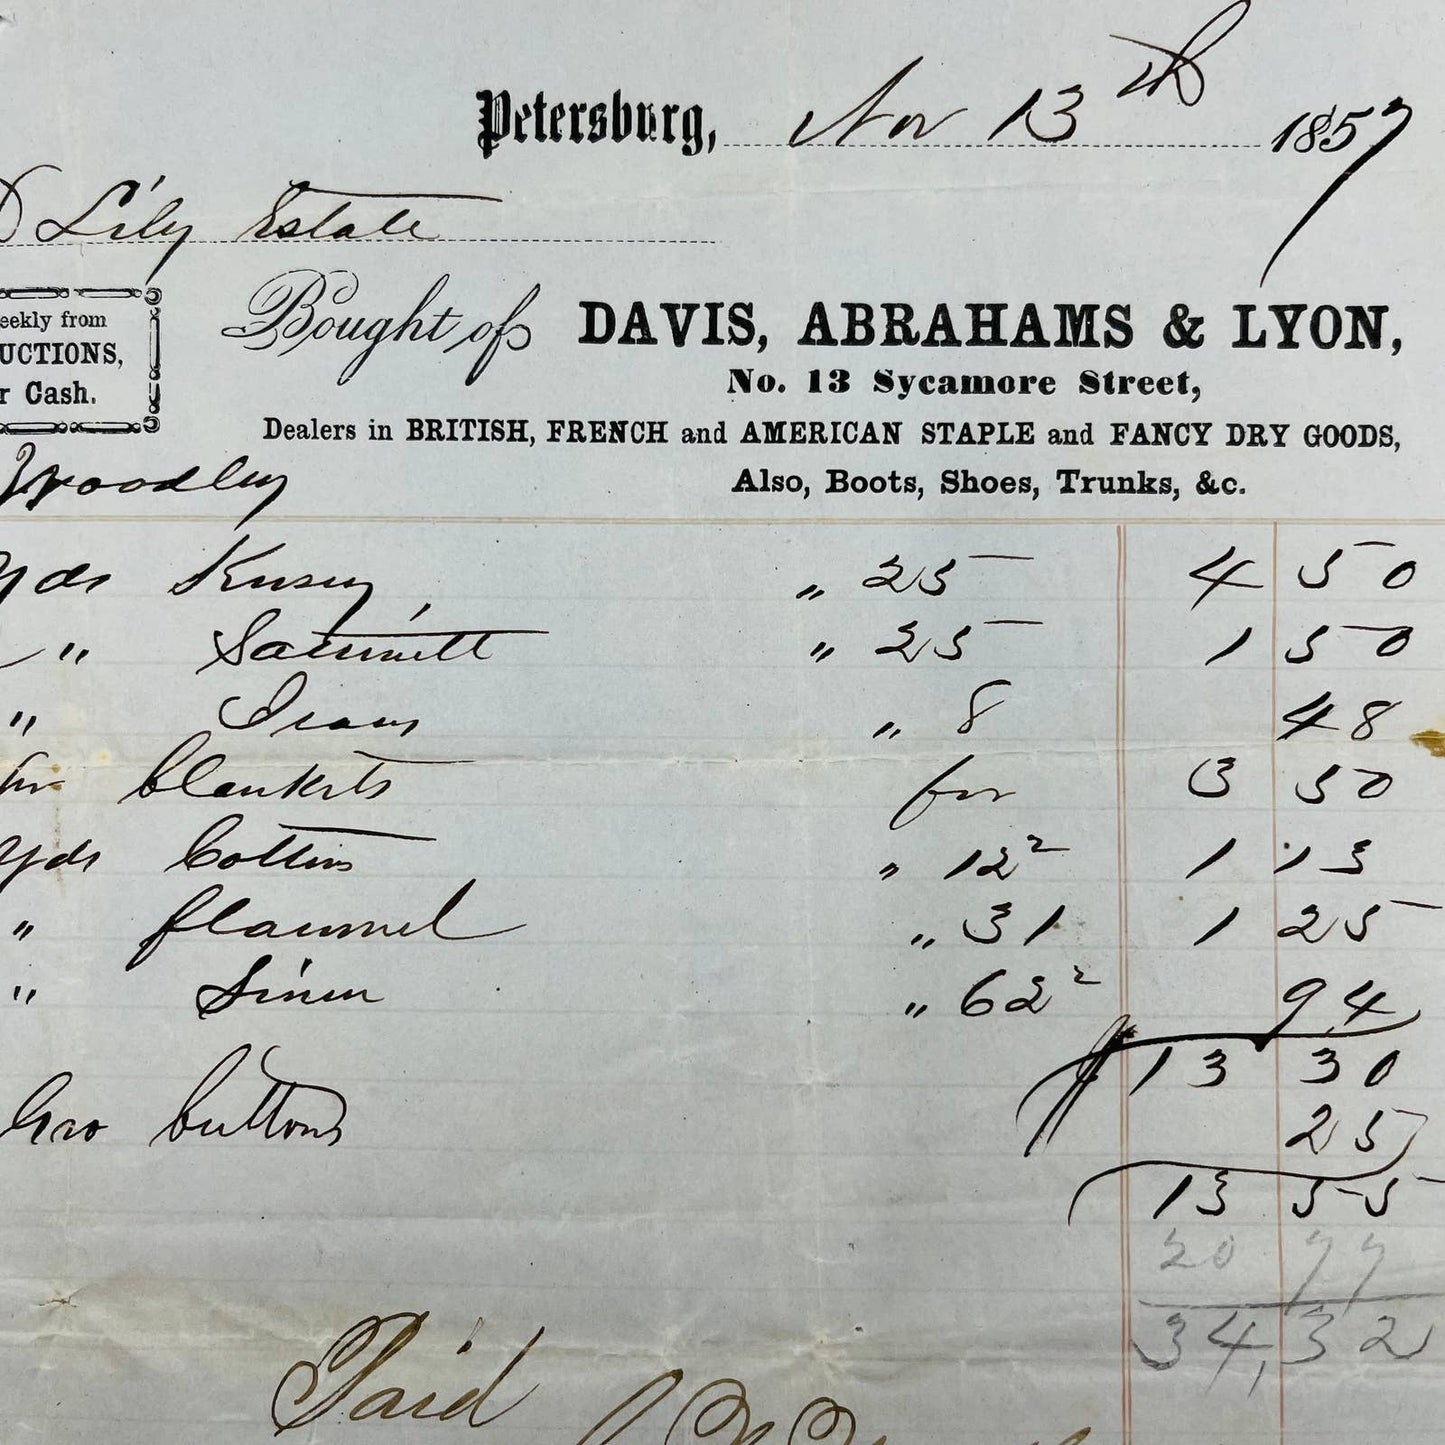 Petersburg, Nov 13th 1857
Lily Estate
eekly from
UCTIONS,
r Cash.
Bought of DAVIS, ABRAHAMS & LYON,
No. 13 Sycamore Street,
Dealers in BRITISH, FRENCH and AMERICAN STAPLE and FANCY DRY GOODS,
Also, Boots, Shoes, Trunks, &c.
Woodley
yds Kersey, " 25 4 50
" Satinett " 25 1 50
" " 8 48
blankets for 3 50
yds Cotton " 12 2 1 13
" flannel " 31 1 25
" Linen " 62 2 94
13 30
Gro buttons 25
13 55
20 77
34,32
Paid